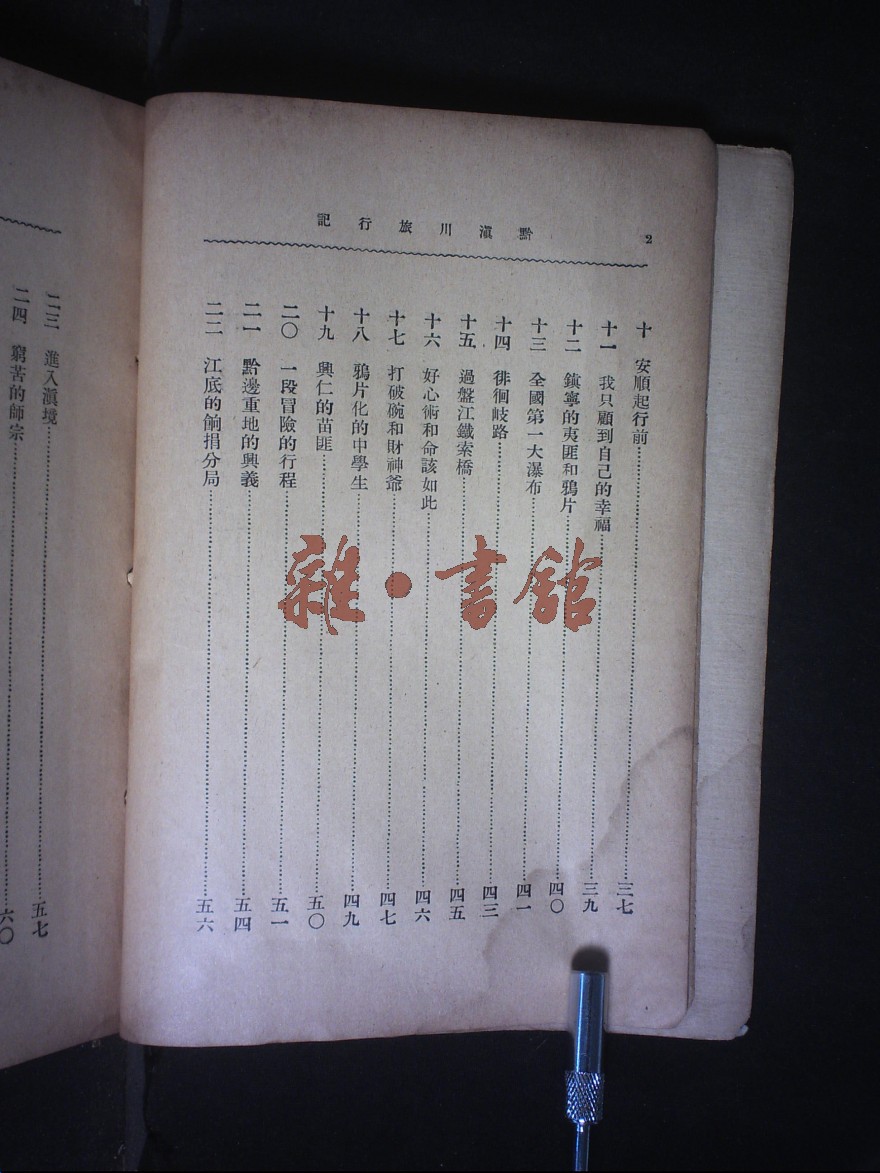 黔滇川旅行記
2
十 安順起行前 三七
十一 我只顧到自己的幸福 三九
十二 鎮寧的夷匪和鴉片 四〇
十三 全國第一大瀑布 四一
十四 徘徊岐路 四三
十五 過盤江鐵索橋 四五
十六 好心術和命該如此 四六
十七 打破碗和財神爺 四七
十八 鴉片化的中學生 四九
十九 興仁的苗匪 五〇
二〇 一段冒險的行程 五一
二一 黔邊重地的興義 五四
二二 江底的餉捐分局 五六
二三 進入滇境 五七
二四 窮苦的師宗 六〇
雜·書館